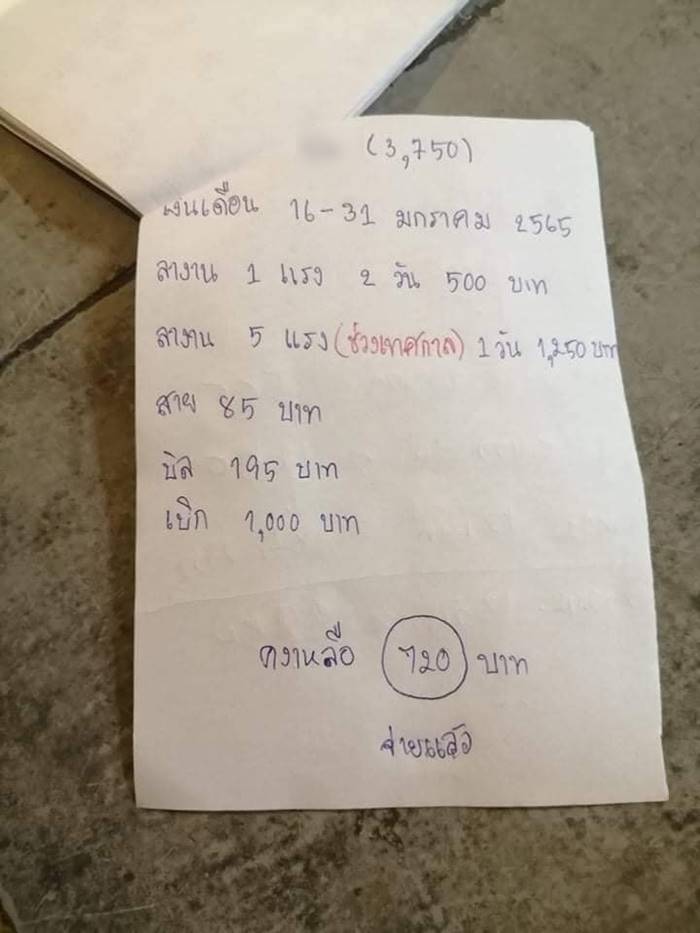 (3,750)
เงินเดือน 16-31 มกราคม 2565
ลางาน 1 แรง 2 วัน 500 บาท
ลางาน 5 แรง (ช่วงเทศกาล) 1 วัน 1,250 บาท
สาย 85 บาท
บิล 195 บาท
เบิก 1,000 บาท
คงเหลือ 720 บาท
จ่ายแล้ว